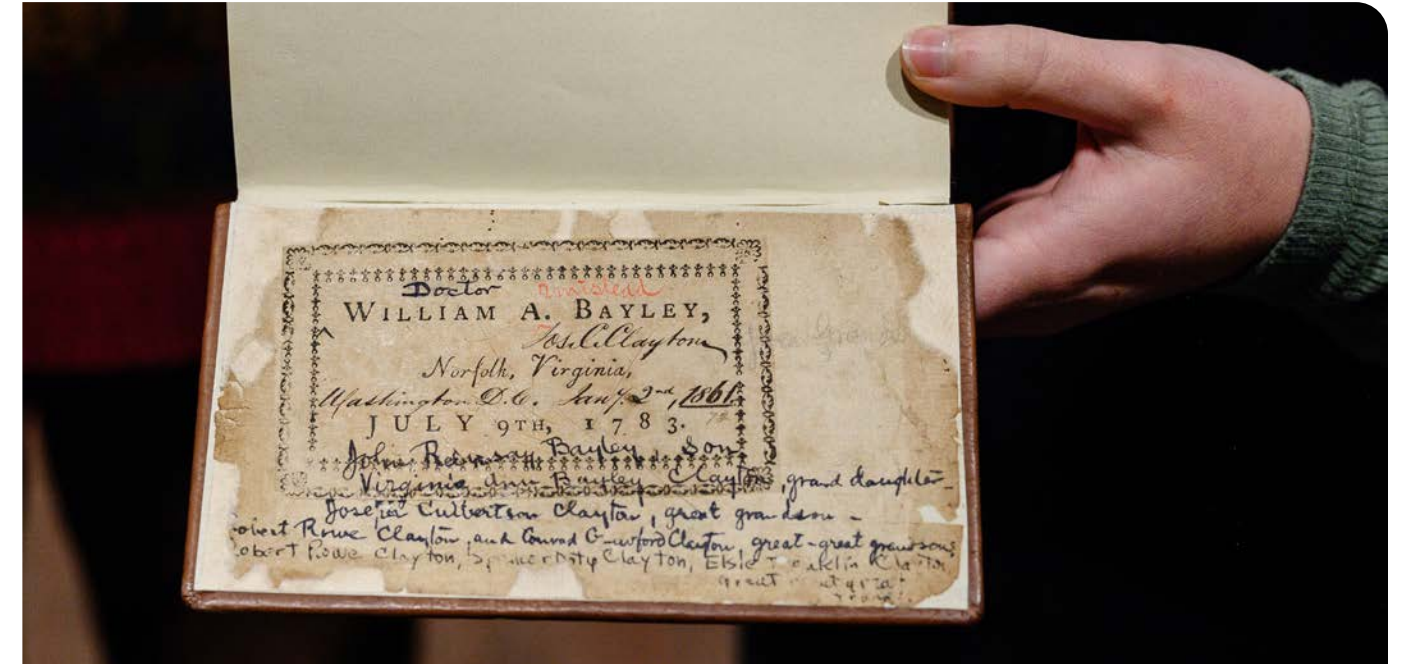 Doctor
WILLIAM A. BAYLEY,
Jos. C. Clayton
Norfolk, Virginia,
Washington D.C. Jany. 2nd, 1861.
JULY 9TH, 1783.
John Ramsay Bayley, Son
Virginia Ann Bayley Clayton, grand daughter
Joseph Culbertson Clayton, great grandson -
Robert Rowe Clayton, and Conrad Clayton, great-great grandsons
Robert Rowe Clayton, Clayton, Elsie
great